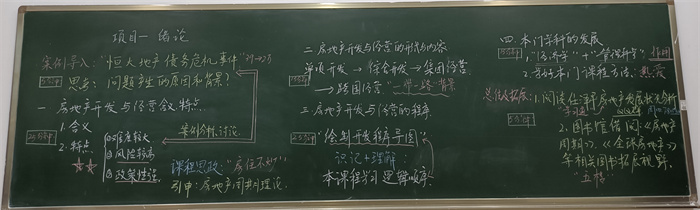 项目一 绪论
案例导入："恒大地产债务危机事件"
5分钟
思考: 问题产生的原因和背景?
一 房地产开发与经营含义.特点
1. 含义
2. 特点
①难度较大
②风险较高
③政策性强
案例分析.讨论
课程思政:"房住不炒"!
引申: 房地产周期理论.
二 房地产开发与经营的形式与内容
单项开发 → 综合开发 → 集团经营
→ 跨国经营
三.房地产开发与经营的程序.
"绘制开发程序导图"
识记+理解:
本课程学习逻辑顺序
四.本门学科的发展
1."经济学"+"管理科学"
2. 学好本门课程方法: 热爱
总结及拓展:
1.阅读任泽平房地产发展状况分析
5分钟
2.图书馆借阅:《房地产
周期》、《全球房地产》
等相关图书拓展视野.